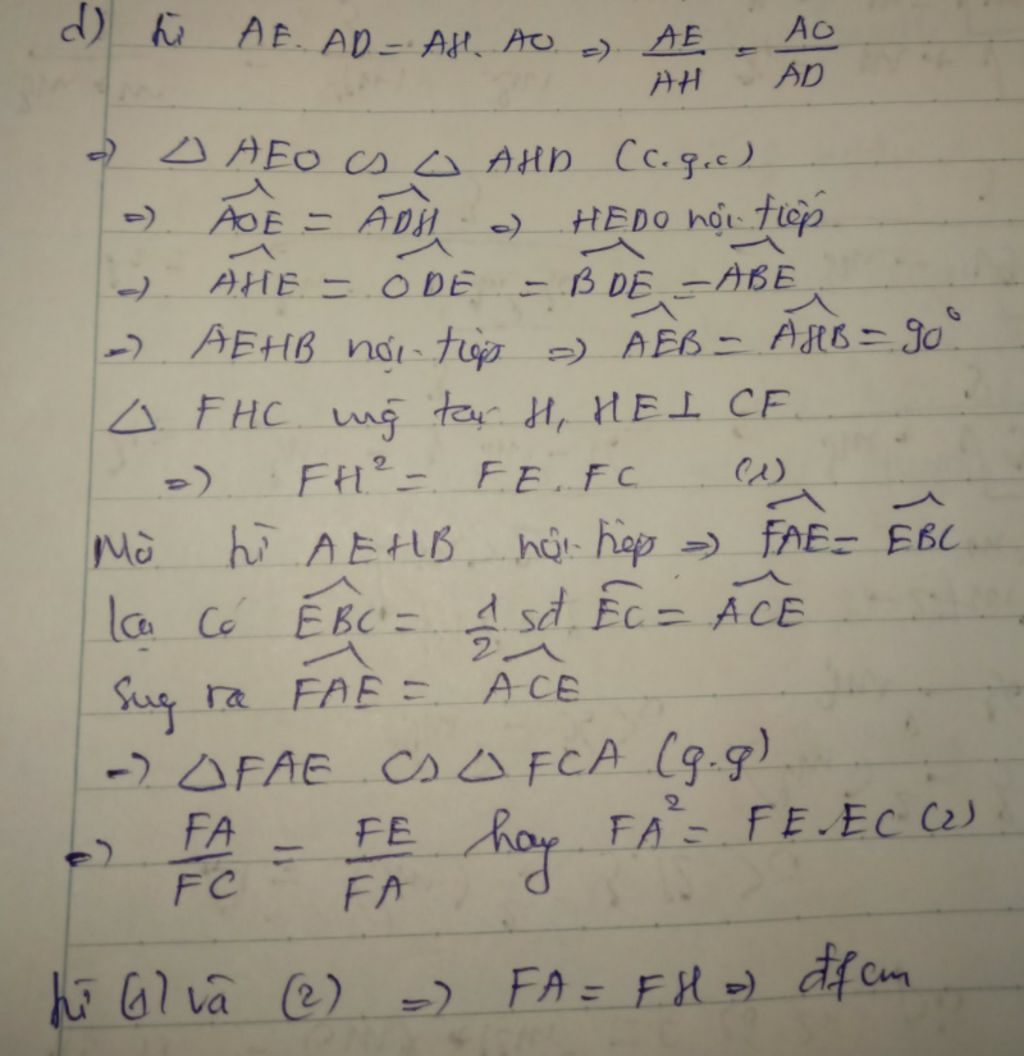 d) Từ AE. AD = AH. AO => AE/AH = AO/AD
=> △ AEO ∽ △ AHD (c.g.c)
=> AOE = ADH => HEDO nội tiếp
=> AHE = ODE = BDE = ABE
=> AEHB nội tiếp => AEB = AHB = 90°
△ FHC vuông tại H, HE ⊥ CF
=> FH² = FE. FC (1)
Mà từ AEHB nội tiếp => FAE = EBC
lại có EBC = 1/2 sđ EC = ACE
Suy ra FAE = ACE
=> △FAE ∽ △ FCA (g.g)
=> FA/FC = FE/FA hay FA² = FE.EC (2)
từ (1) và (2) => FA = FH => đfcm